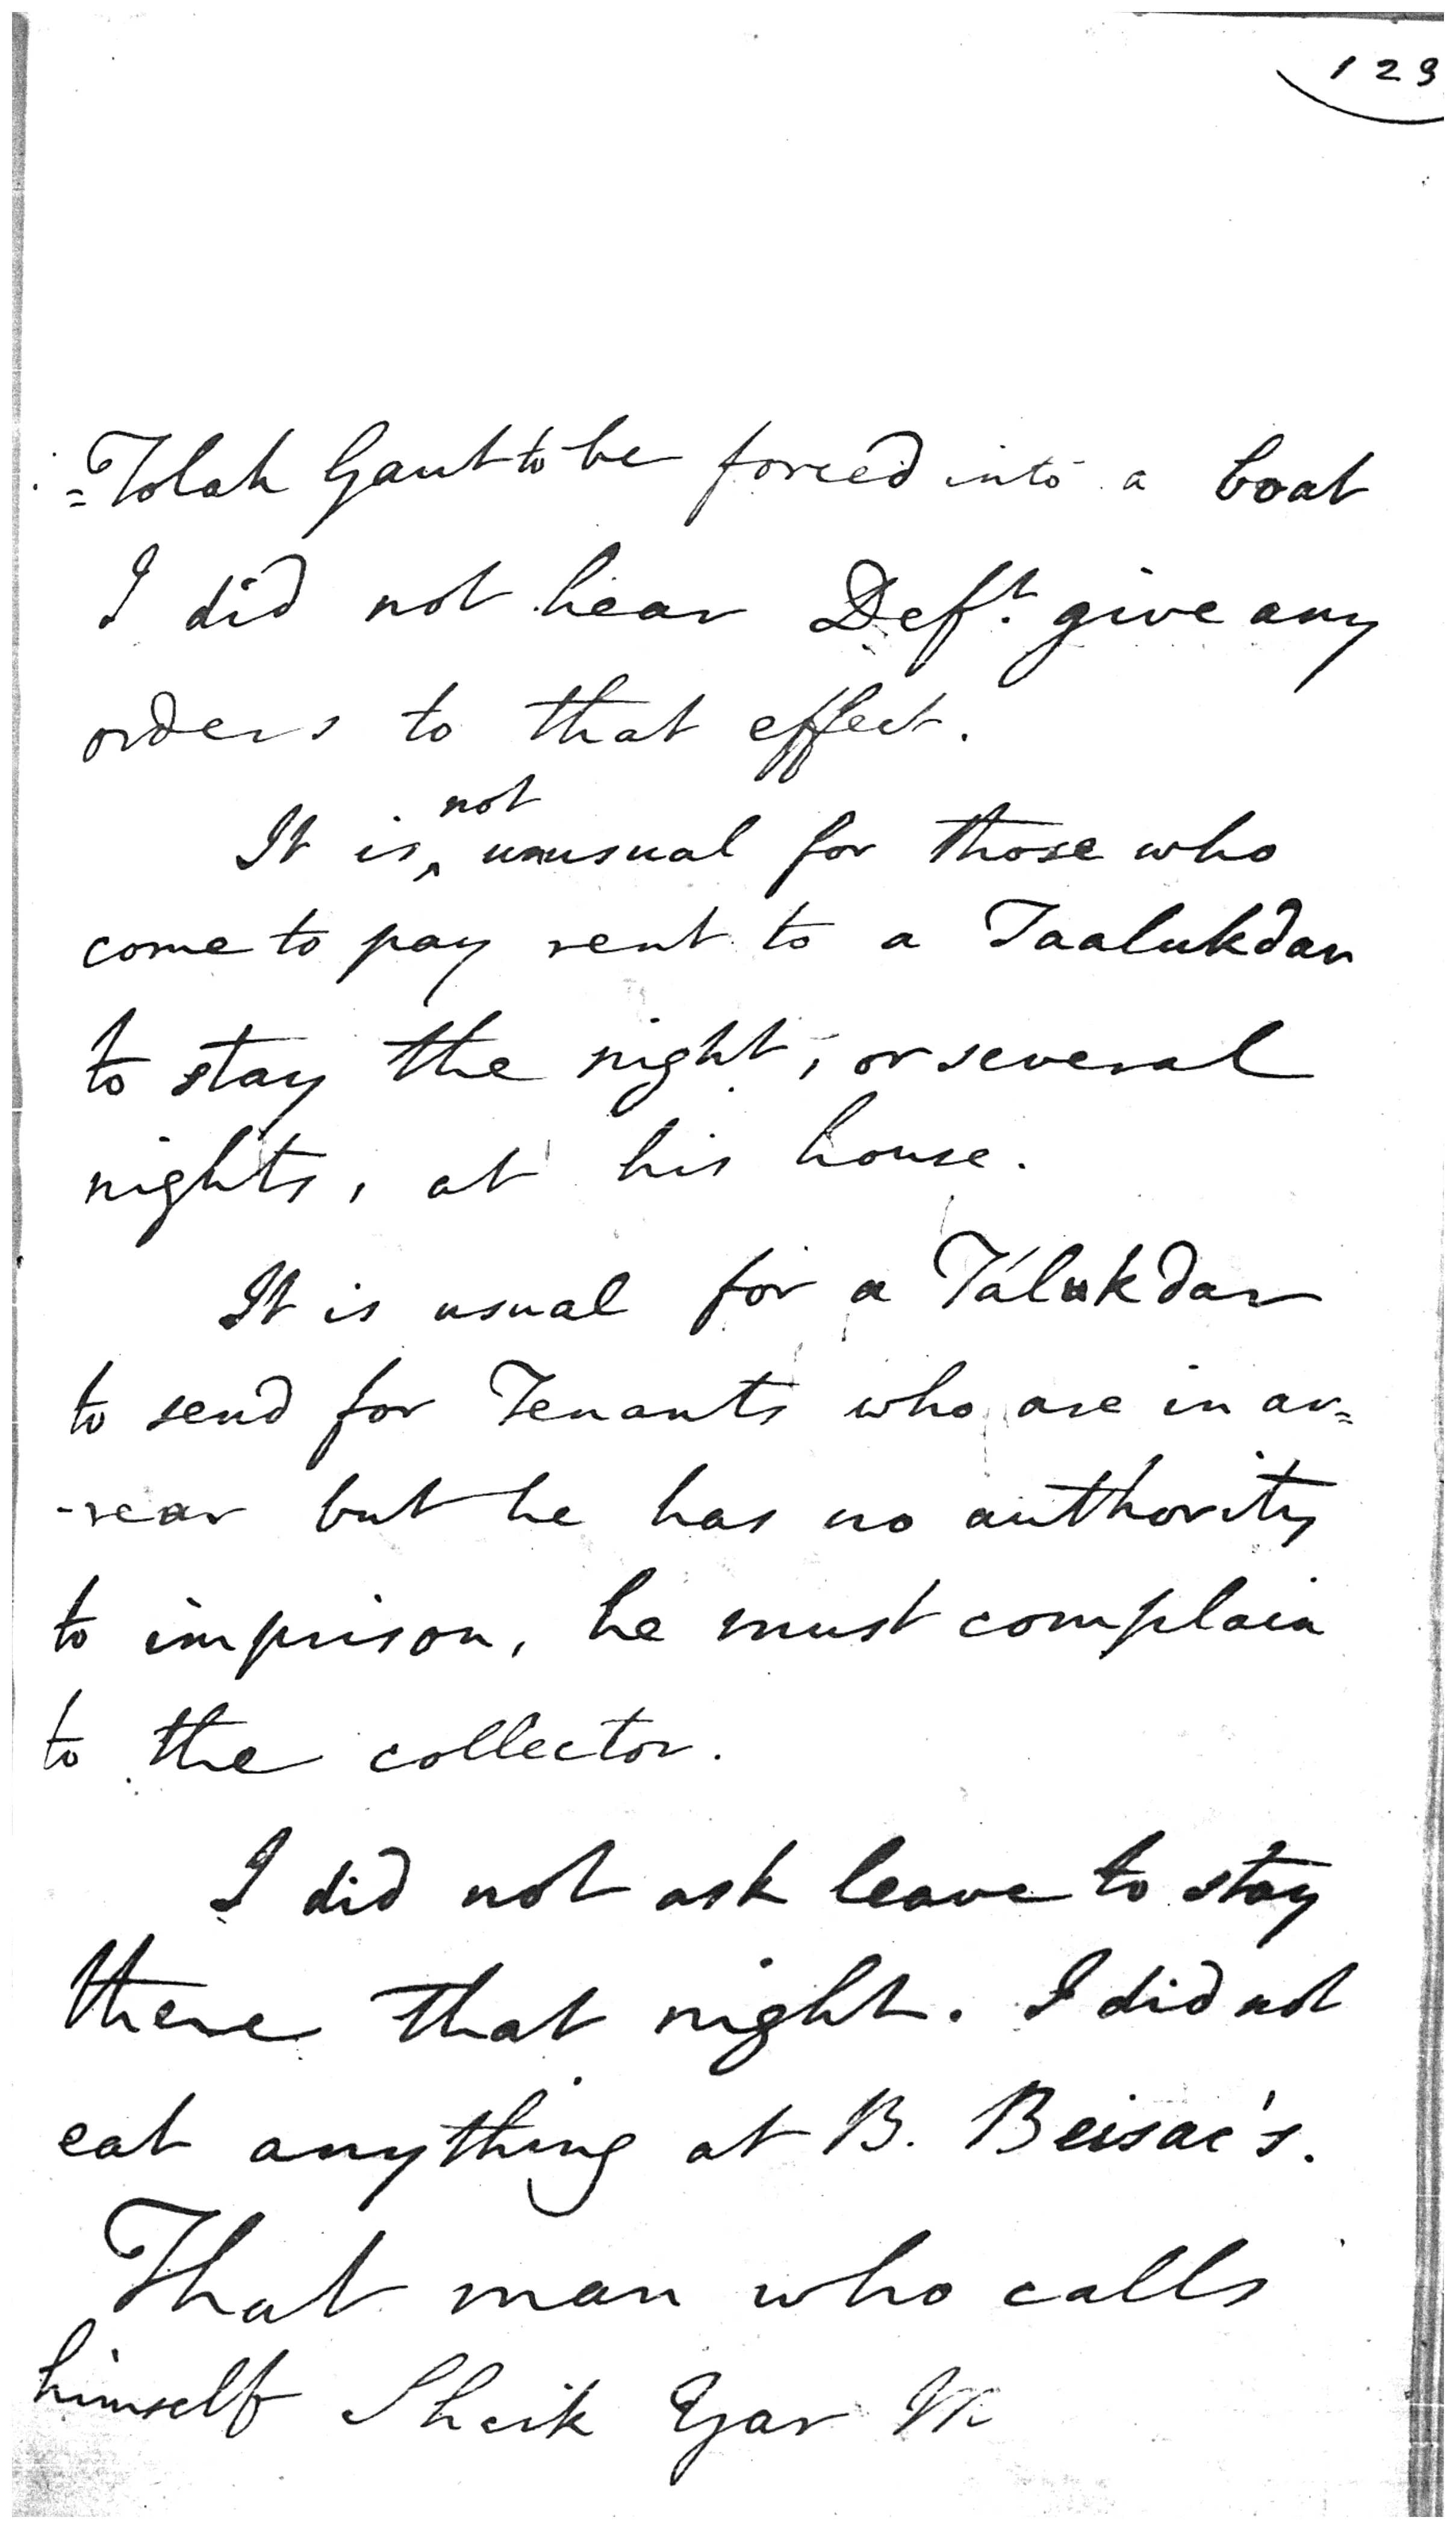 129
=Tolah Gaut to be forced into a boat
I did not hear Deft. give any
orders to that effect.
It is not unusual for those who
come to pay rent to a Taalukdar
to stay the night, or several
nights, at his house.
It is usual for a Tálukdar
to send for Tenants who are in ar=
-rear but he has no authority
to imprison, he must complain
to the collector.
I did not ask leave to stay
there that night. I did not
eat anything at B. Beisac's.
That man who calls
himself Sheik Eyar M